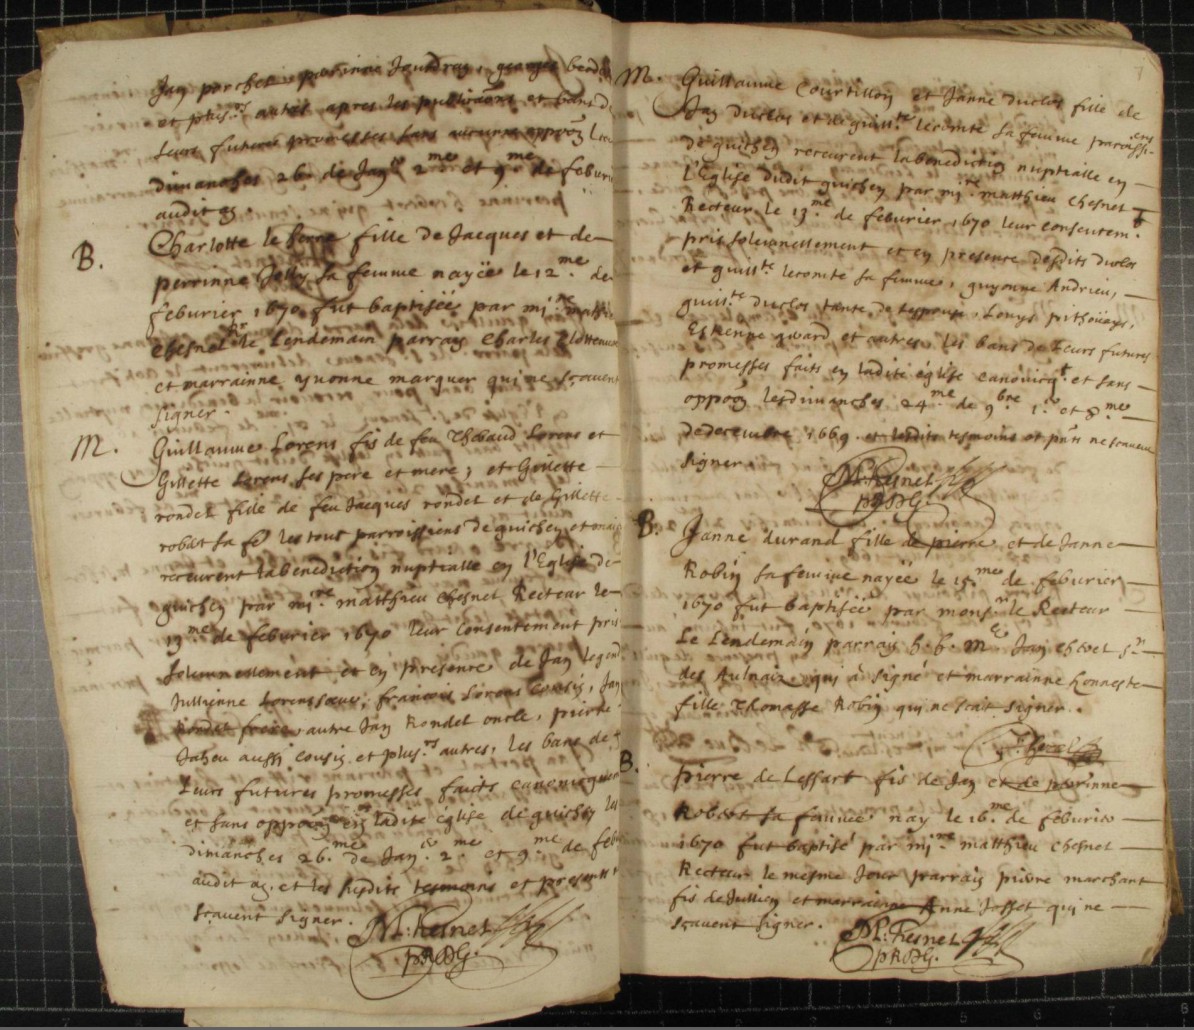 Jan porchet perrinne Joudray, georges
et plus.rs autres apres les publications et bans de
leurs futures promesses sans aucunne oppoõn les
dimanches 26. de Jan.er 2.me et 9.me de feburier
audit an.
B.
Charlotte le fille de Jacques et de
perrinne Jolly sa femme nayëe le 12.me de
feburier 1670 fut baptisëe par mi.re matthieu
chesnel R.r le Lendemain parrain Charles
et marrainne yvonne marquer qui ne sçavent
signer.
M.
Guillaume Lorens fis de feu Thebaud Lorens et
Gillette Lorens ses pere et mere, et Gillette
rondel fille de feu Jacques rondel et de Gillette
robert sa fe les tous parroissiens de guichen et
receurent la benediction nuptialle en l'Eglise de
guichen par mi.re matthieu Chesnel Recteur le
13.me de feburier 1670 leur Consentement pris
solemnellement et en presence de Jan legend
Jullienne Lorens sœur, francois Lorens Cousin, Jan
Rondel frere, autre Jan Rondel oncle, pierre
Jahou aussi cousin et plus.rs autres, les bans de
Leurs futures promesses faicts canonicquem
et sans oppoõn en ladite eglise de guichen les
dimanches 26.me de Jan.er 2.me et 9.me de febur
audit an. et les susdits tesmoins et presents
sçavent signer.
M. Chesnel
pRDG.
M.
Guillaume Courtillon et Janne duclos fille de
Jan duclos et de guill.te lecomte sa femme parroissiens
de guichen receurent la benediction nuptialle en
l'Eglise dudit guichen par mi.re matthieu Chesnel
Recteur le 13.me de feburier 1670 leur consentem.t
pris solemnellement et en presence desdits duclos
et guill.te lecomte sa femme, guyonne Andrieu,
guill.te duclos tante de l'espouse, Louys
Estienne guiard et autres les bans de Leurs futures
promesses faits en ladite eglise canonicq.t et sans
oppoõn les dimanches 24.me de 9.bre 1.er et 8.me
de decembre 1669. et lesdits tesmoins et pnts ne sçavent
signer.
M. Chesnel
pRDG.
B.
Janne durand fille de pierre et de Janne
Robin sa femme nayëe le 15.me de feburier
1670 fut baptisëe par mons.r le Recteur
Le Lendemain parrain h. h. M.e Jan s.r
des Aulnaiz qui a signé et marrainne honneste
fille Thomasse Robin qui ne scait signer.
B.
pierre de Lessart fis de Jan et de perrinne
Robert sa femme nay le 16.me de feburier
1670 fut baptisé par mi.re matthieu Chesnel
Recteur le mesme Jour parrain pierre marchant
fis de Jullien et marrainne Anne Josset qui ne
sçavent signer.
M. Chesnel
pRDG.